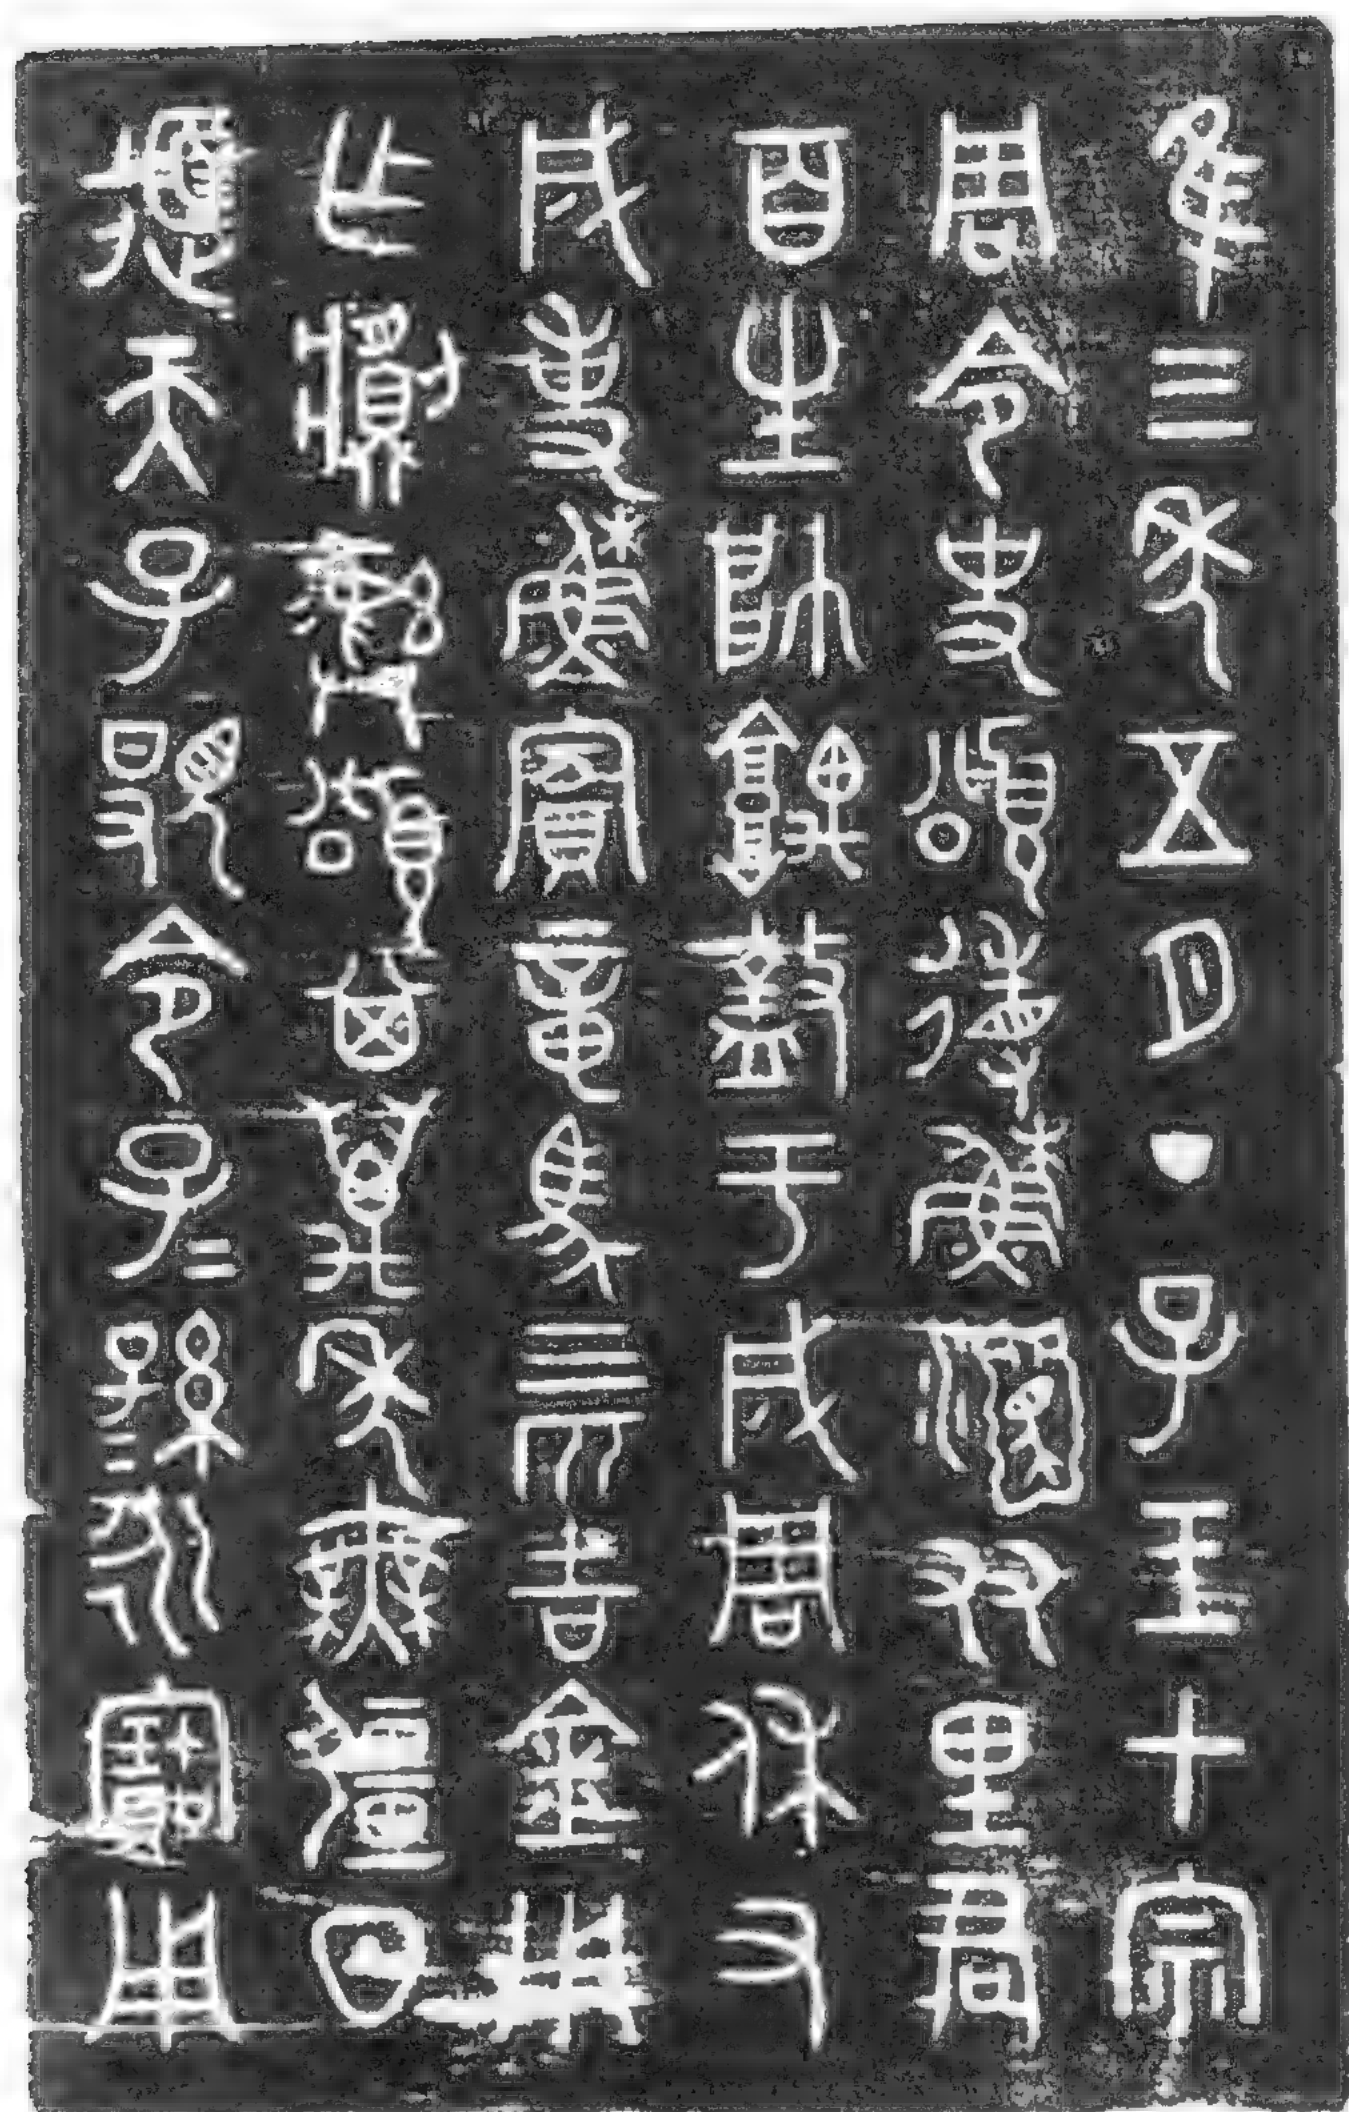 隹三年五月丁子王才宗
周令史頌𢓊穌友里君
百生帥盩于成周休又
成事穌賓章馬四匹吉金用
乍䵼彝頌其萬年無彊日
𨒙天子𩁹令子=孫=永寶用